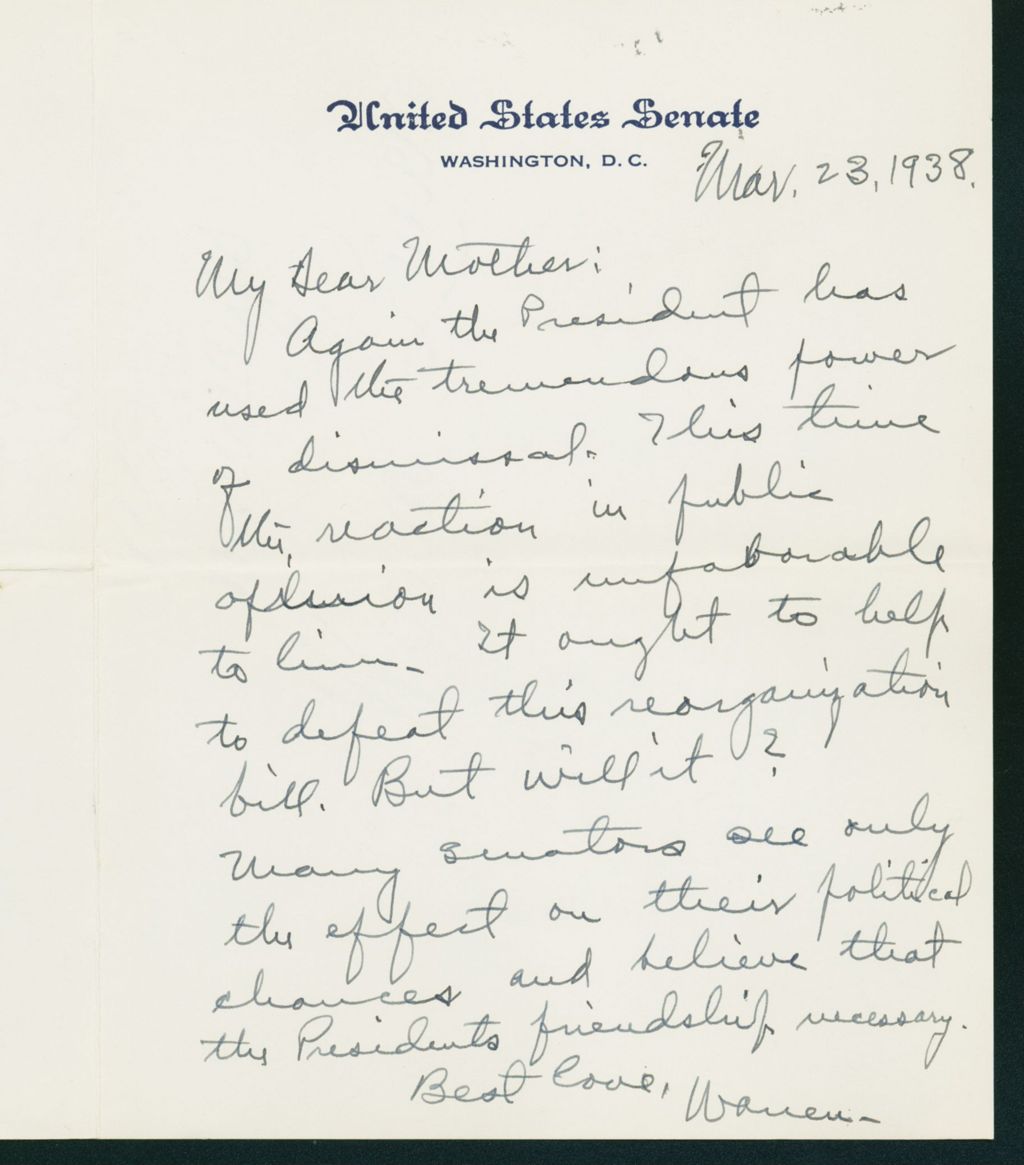 United States Senate
WASHINGTON, D. C.
Mar. 23, 1938.
My Dear Mother:
Again the President has
used the tremendous power
of dismissal. This time
the reaction in public
opinion is unfavorable
to him. It ought to help
to defeat this reorganization
bill. But will it?
Many senators see only
the effect on their political
chances and believe that
the Presidents friendship necessary.
Best love, Warren